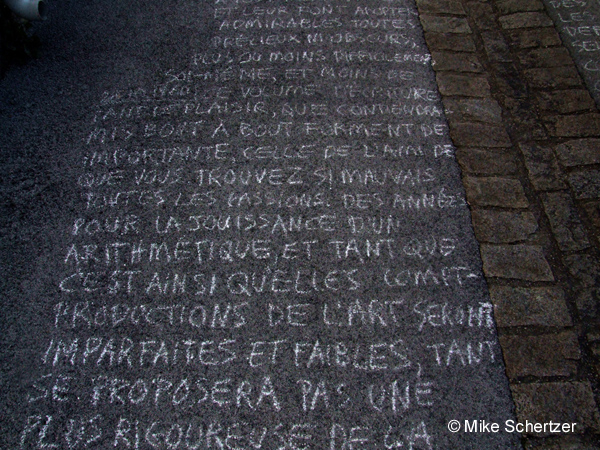 ET LEUR FONT ADOPTER
ADMIRABLES TOUTES
PRÉCIEUX NI OBSCURS,
PLUS OU MOINS DIFFICILEMENT
SOI-MÊME, ET MOINS DE
LE VOLUME, L'ÉCRITURE
PLAISIR, QUE CONTIENDRA
MIS BOUT À BOUT FORMENT DE
IMPORTANTE, CELLE DE L'AMI DE
QUE VOUS TROUVEZ SI MAUVAIS
TOUTES LES PASSIONS. DES ANNÉES
POUR LA JOUISSANCE D'UN
ARITHMETIQUE, ET TANT QUE
C'EST AINSI QU'ELLES COMPT-
PRODUCTIONS DE L'ART SERONT
IMPARFAITES ET FAIBLES, TANT
SE PROPOSERA PAS UNE
PLUS RIGOUREUSE DE LA
© Mike Schertzer